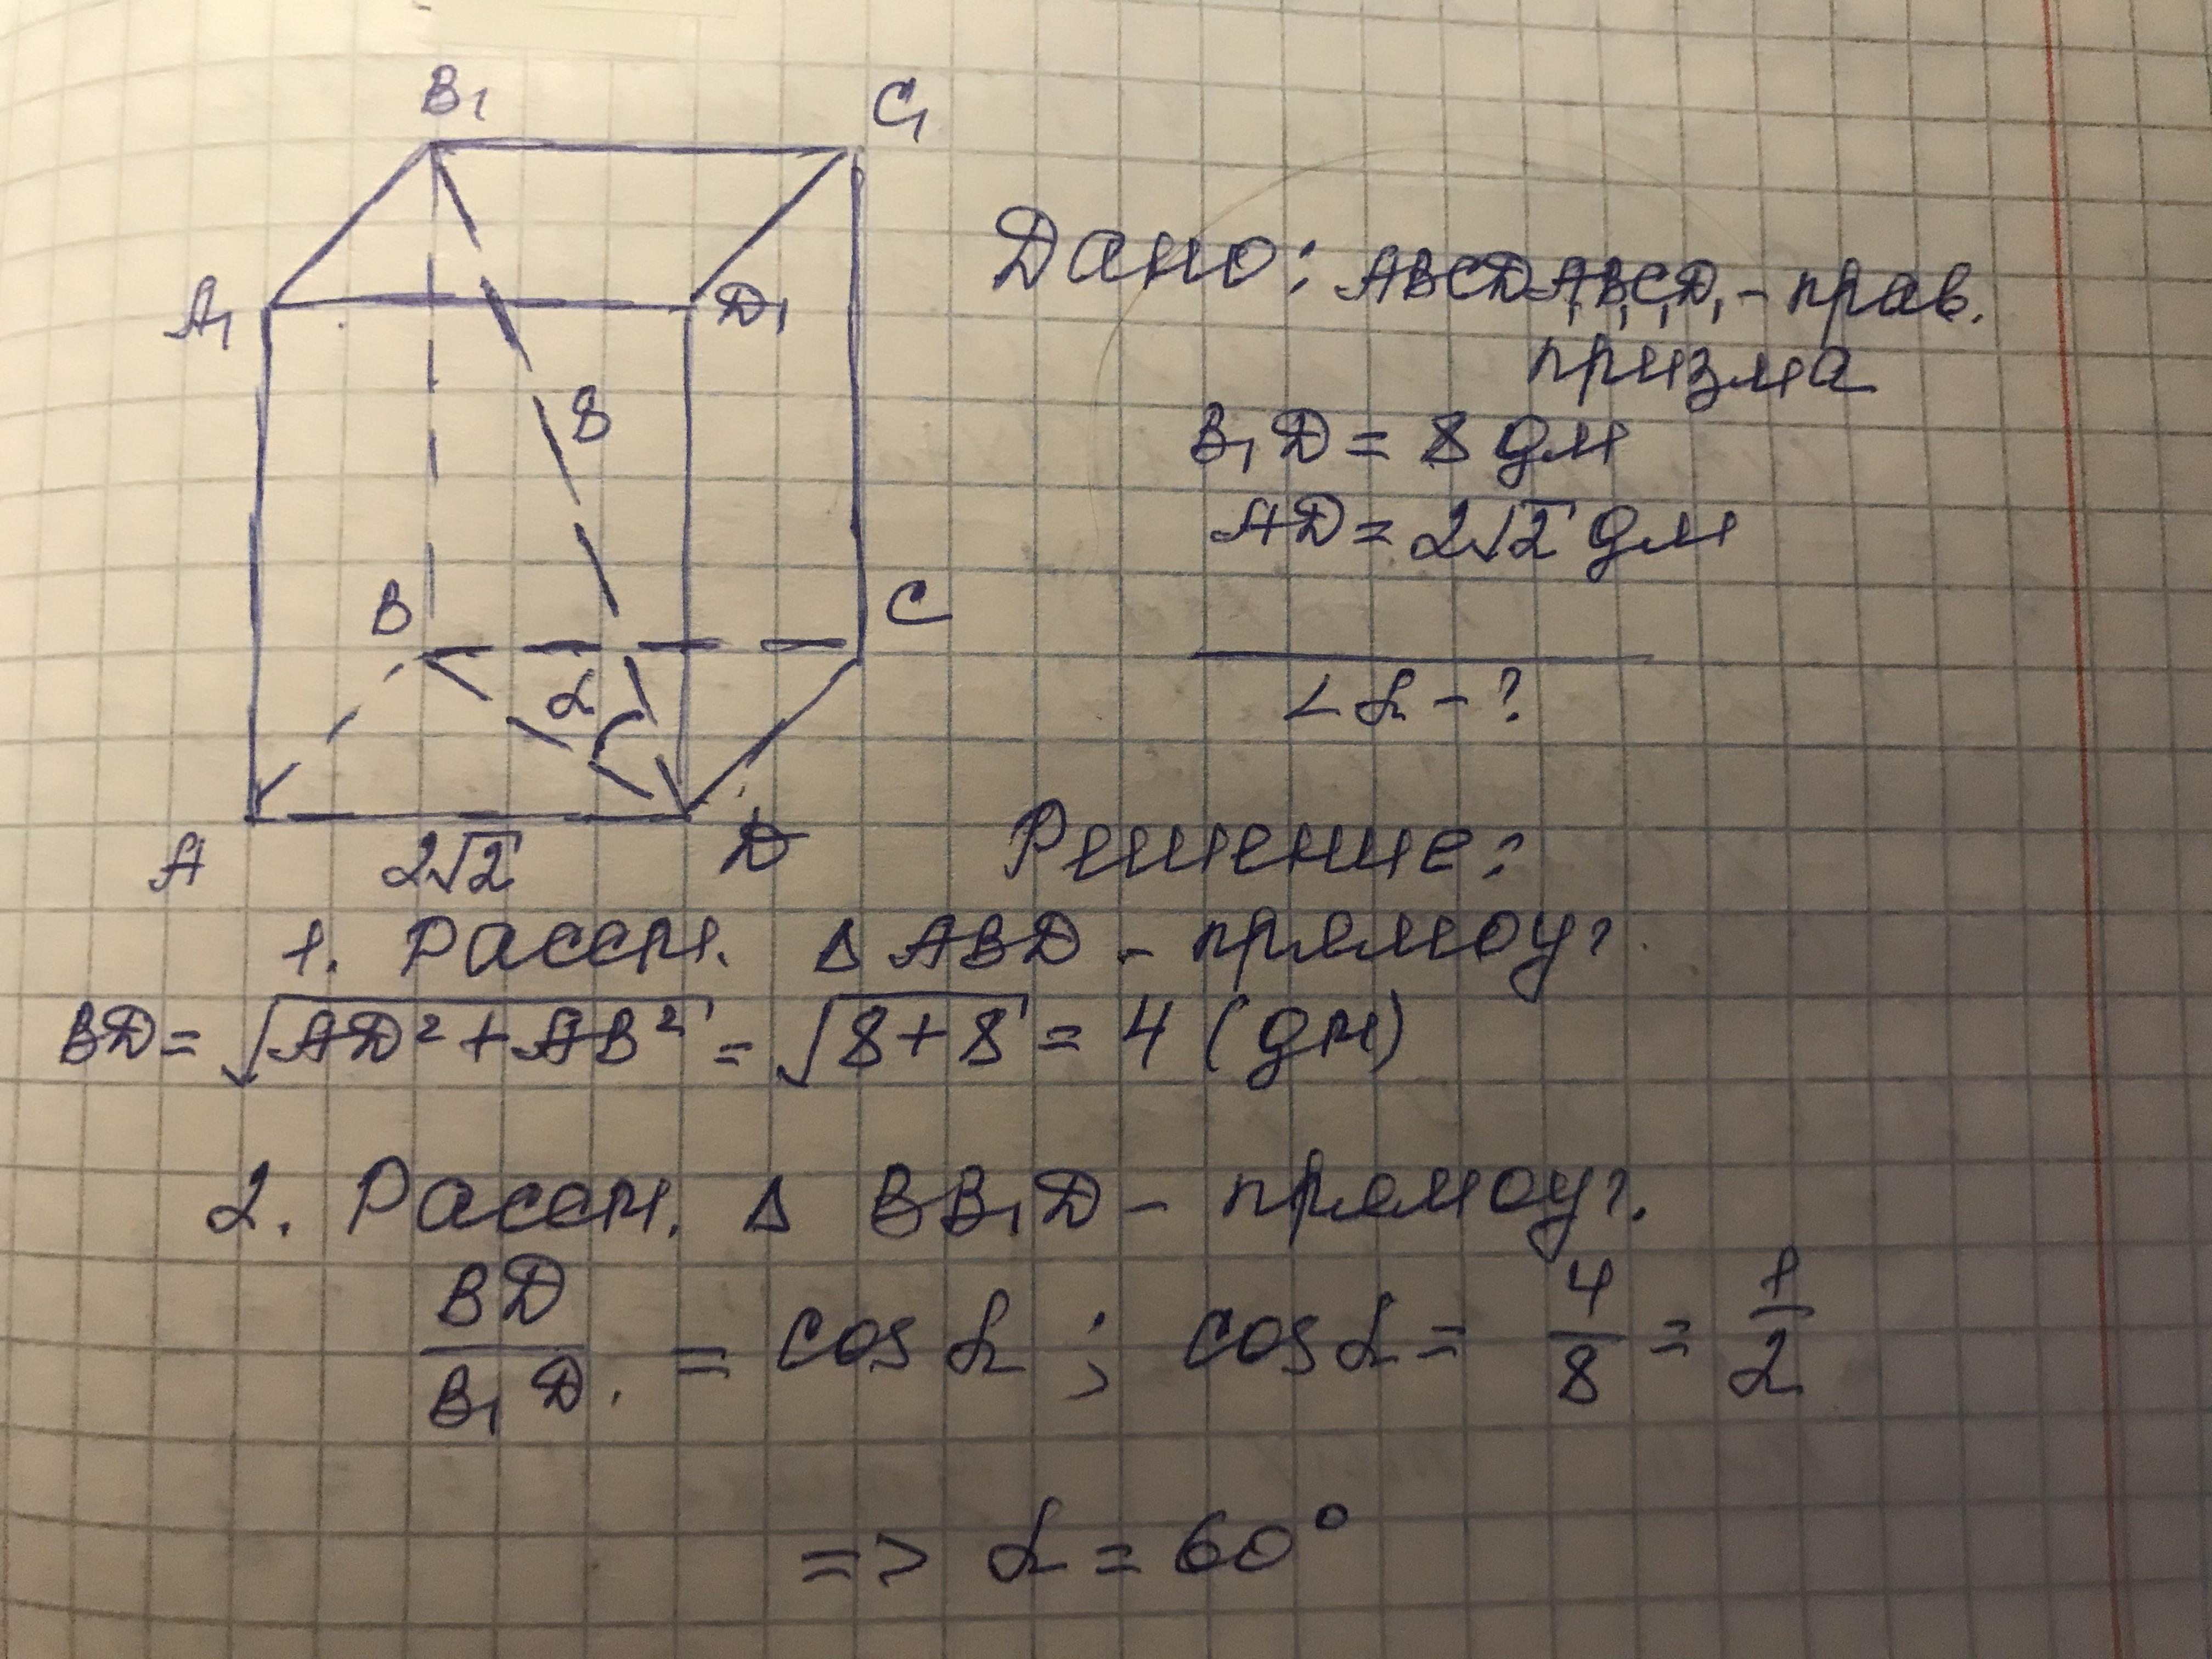 B₁
C₁
A₁
D₁
8
B
C
α
A
2√2
D
Дано: ABCDA₁B₁C₁D₁ - прав.
призма
B₁D = 8 дм
AD = 2√2 дм
∠α - ?
Решение:
1. Рассм. Δ ABD - прямоуг.
BD = √(AD² + AB²) = √(8 + 8) = 4 (дм)
2. Рассм. Δ BB₁D - прямоуг.
BD/B₁D = cos α ; cos α = 4/8 = 1/2
=> α = 60°